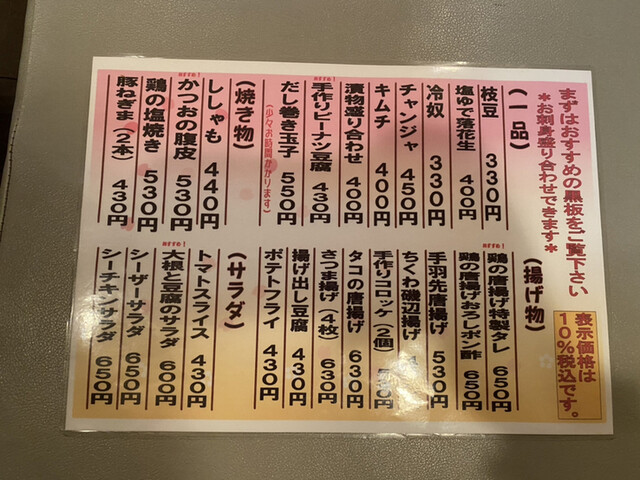 まずはおすすめの黒板をご覧下さい
＊お刺身盛り合わせできます＊
(一品)
枝豆 330円
塩ゆで落花生 400円
冷奴 330円
チャンジャ 450円
キムチ 400円
漬物盛り合わせ 400円
おすすめ！
手作りピーナツ豆腐 430円
だし巻き玉子 550円
(少々お時間かかります)
(焼き物)
ししゃも 440円
おすすめ！
かつおの腹皮 530円
鶏の塩焼き 530円
豚ねぎま(2本) 430円
表示価格は
10％税込です。
(揚げ物)
おすすめ！
鶏の唐揚げ特製タレ 650円
鶏の唐揚げおろしポン酢 650円
手羽先唐揚げ 530円
ちくわ磯辺揚げ
手作りコロッケ(2個)
タコの唐揚げ 630円
さつま揚げ(4枚) 630円
揚げ出し豆腐 430円
ポテトフライ 430円
(サラダ)
トマトスライス 430円
おすすめ！
大根と豆腐のサラダ 600円
シーザーサラダ 650円
シーチキンサラダ 650円